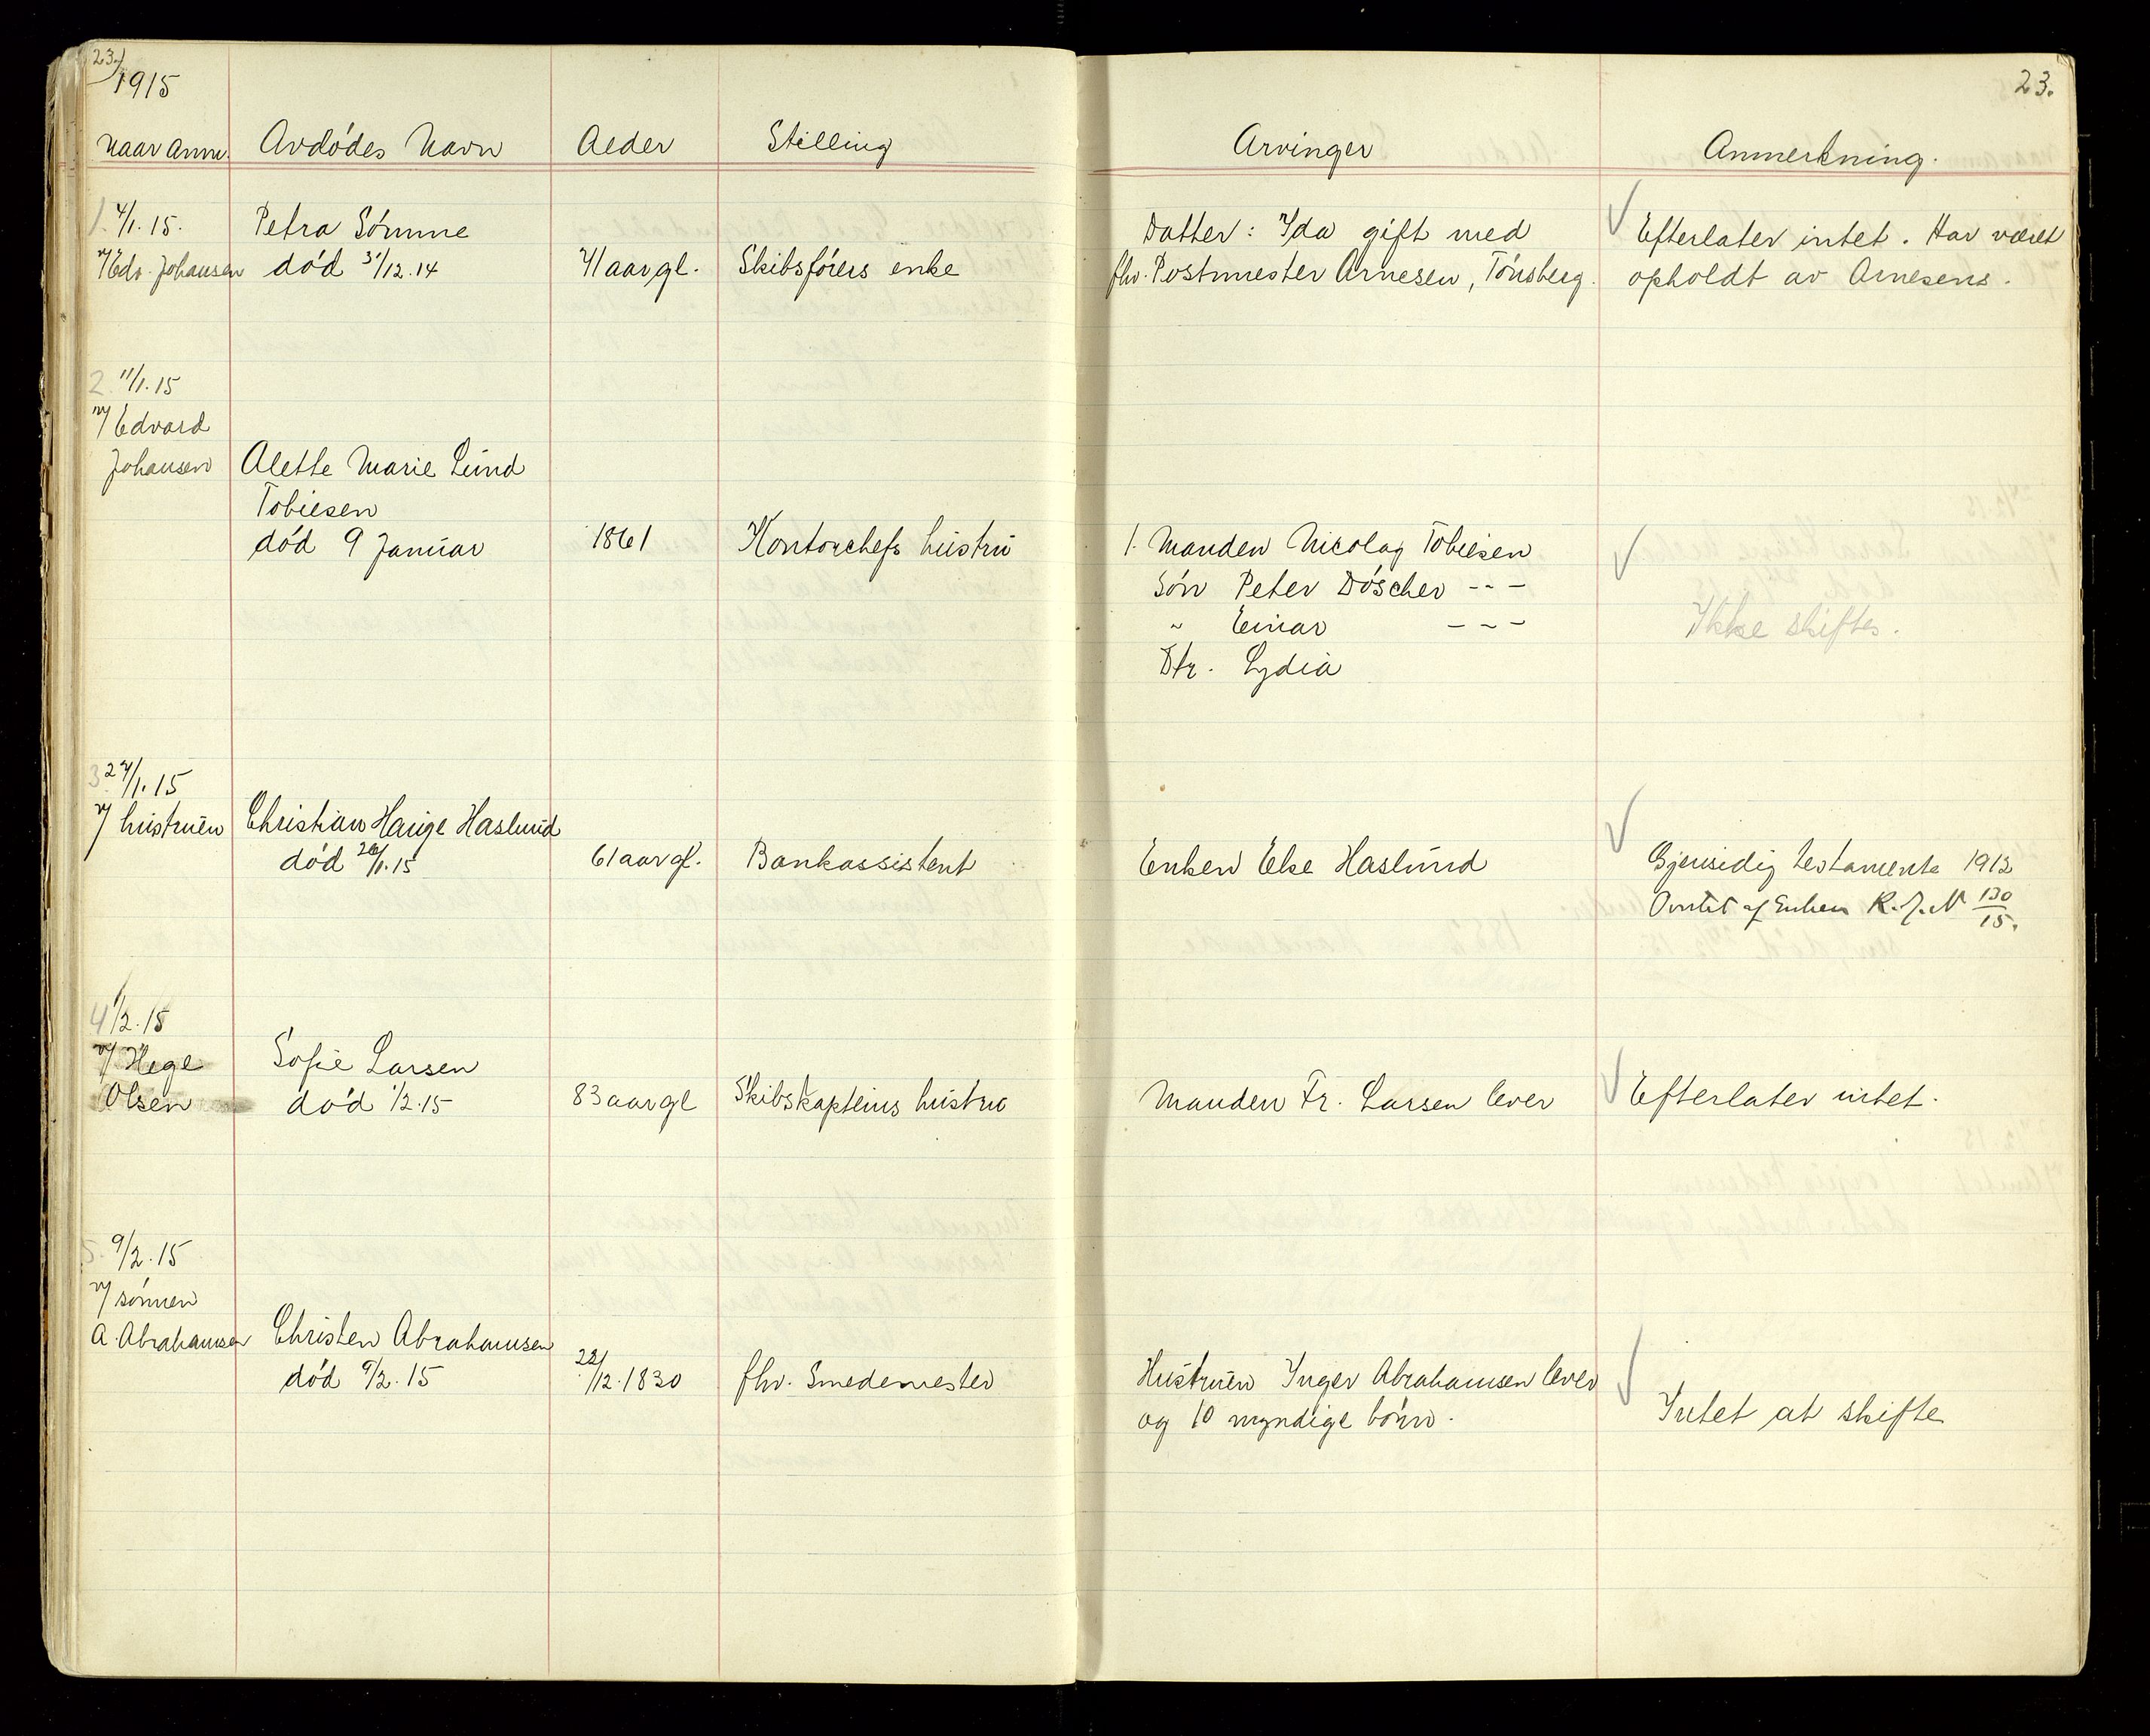 23.
1915
23.
Naar anm. Avdödes Navn Alder Stilling Arvinger Anmerkning.
1. 4/1. 15. Petra Sömme Datter: Ida gift med Efterlater intet. Har været
v/ Edv. Johansen död 31/12.14 41 aar gl. Skibsförers enke fhv. Postmester Arnesen, Tönsberg. opholdt av Arnesens.
2. 11/1. 15
v/ Edvard
Johansen Alette Marie Lund
Tobiesen
död 9 Januar 1861 Kontorchefs hustru 1. Manden Nicolay Tobiesen
Sön Peter Döscher - - -
" Einar - - - Ikke skiftes.
Dtr. Lydia
3. 27/1. 15
v/ hustruen Christian Hauge Haslund
död 26/1. 15 61 aar gl. Bankassistent Enken Else Haslund Gjensidig testamente 1912
Overtat af Enken R. J. N 130/15.
4. 1/2. 15
v/ Hege Sofie Larsen
Olsen död 1/2. 15 83 aar gl Skibskapteins hustru Manden Fr. Larsen lever Efterlater intet.
5. 9/2. 15
v/ sönnen
A. Abrahamsen Christen Abrahamsen
död 9/2. 15 22/12. 1830 fhv. Smedemester Hustruen Inger Abrahamsen lever
og 10 myndige börn. Intet at skifte